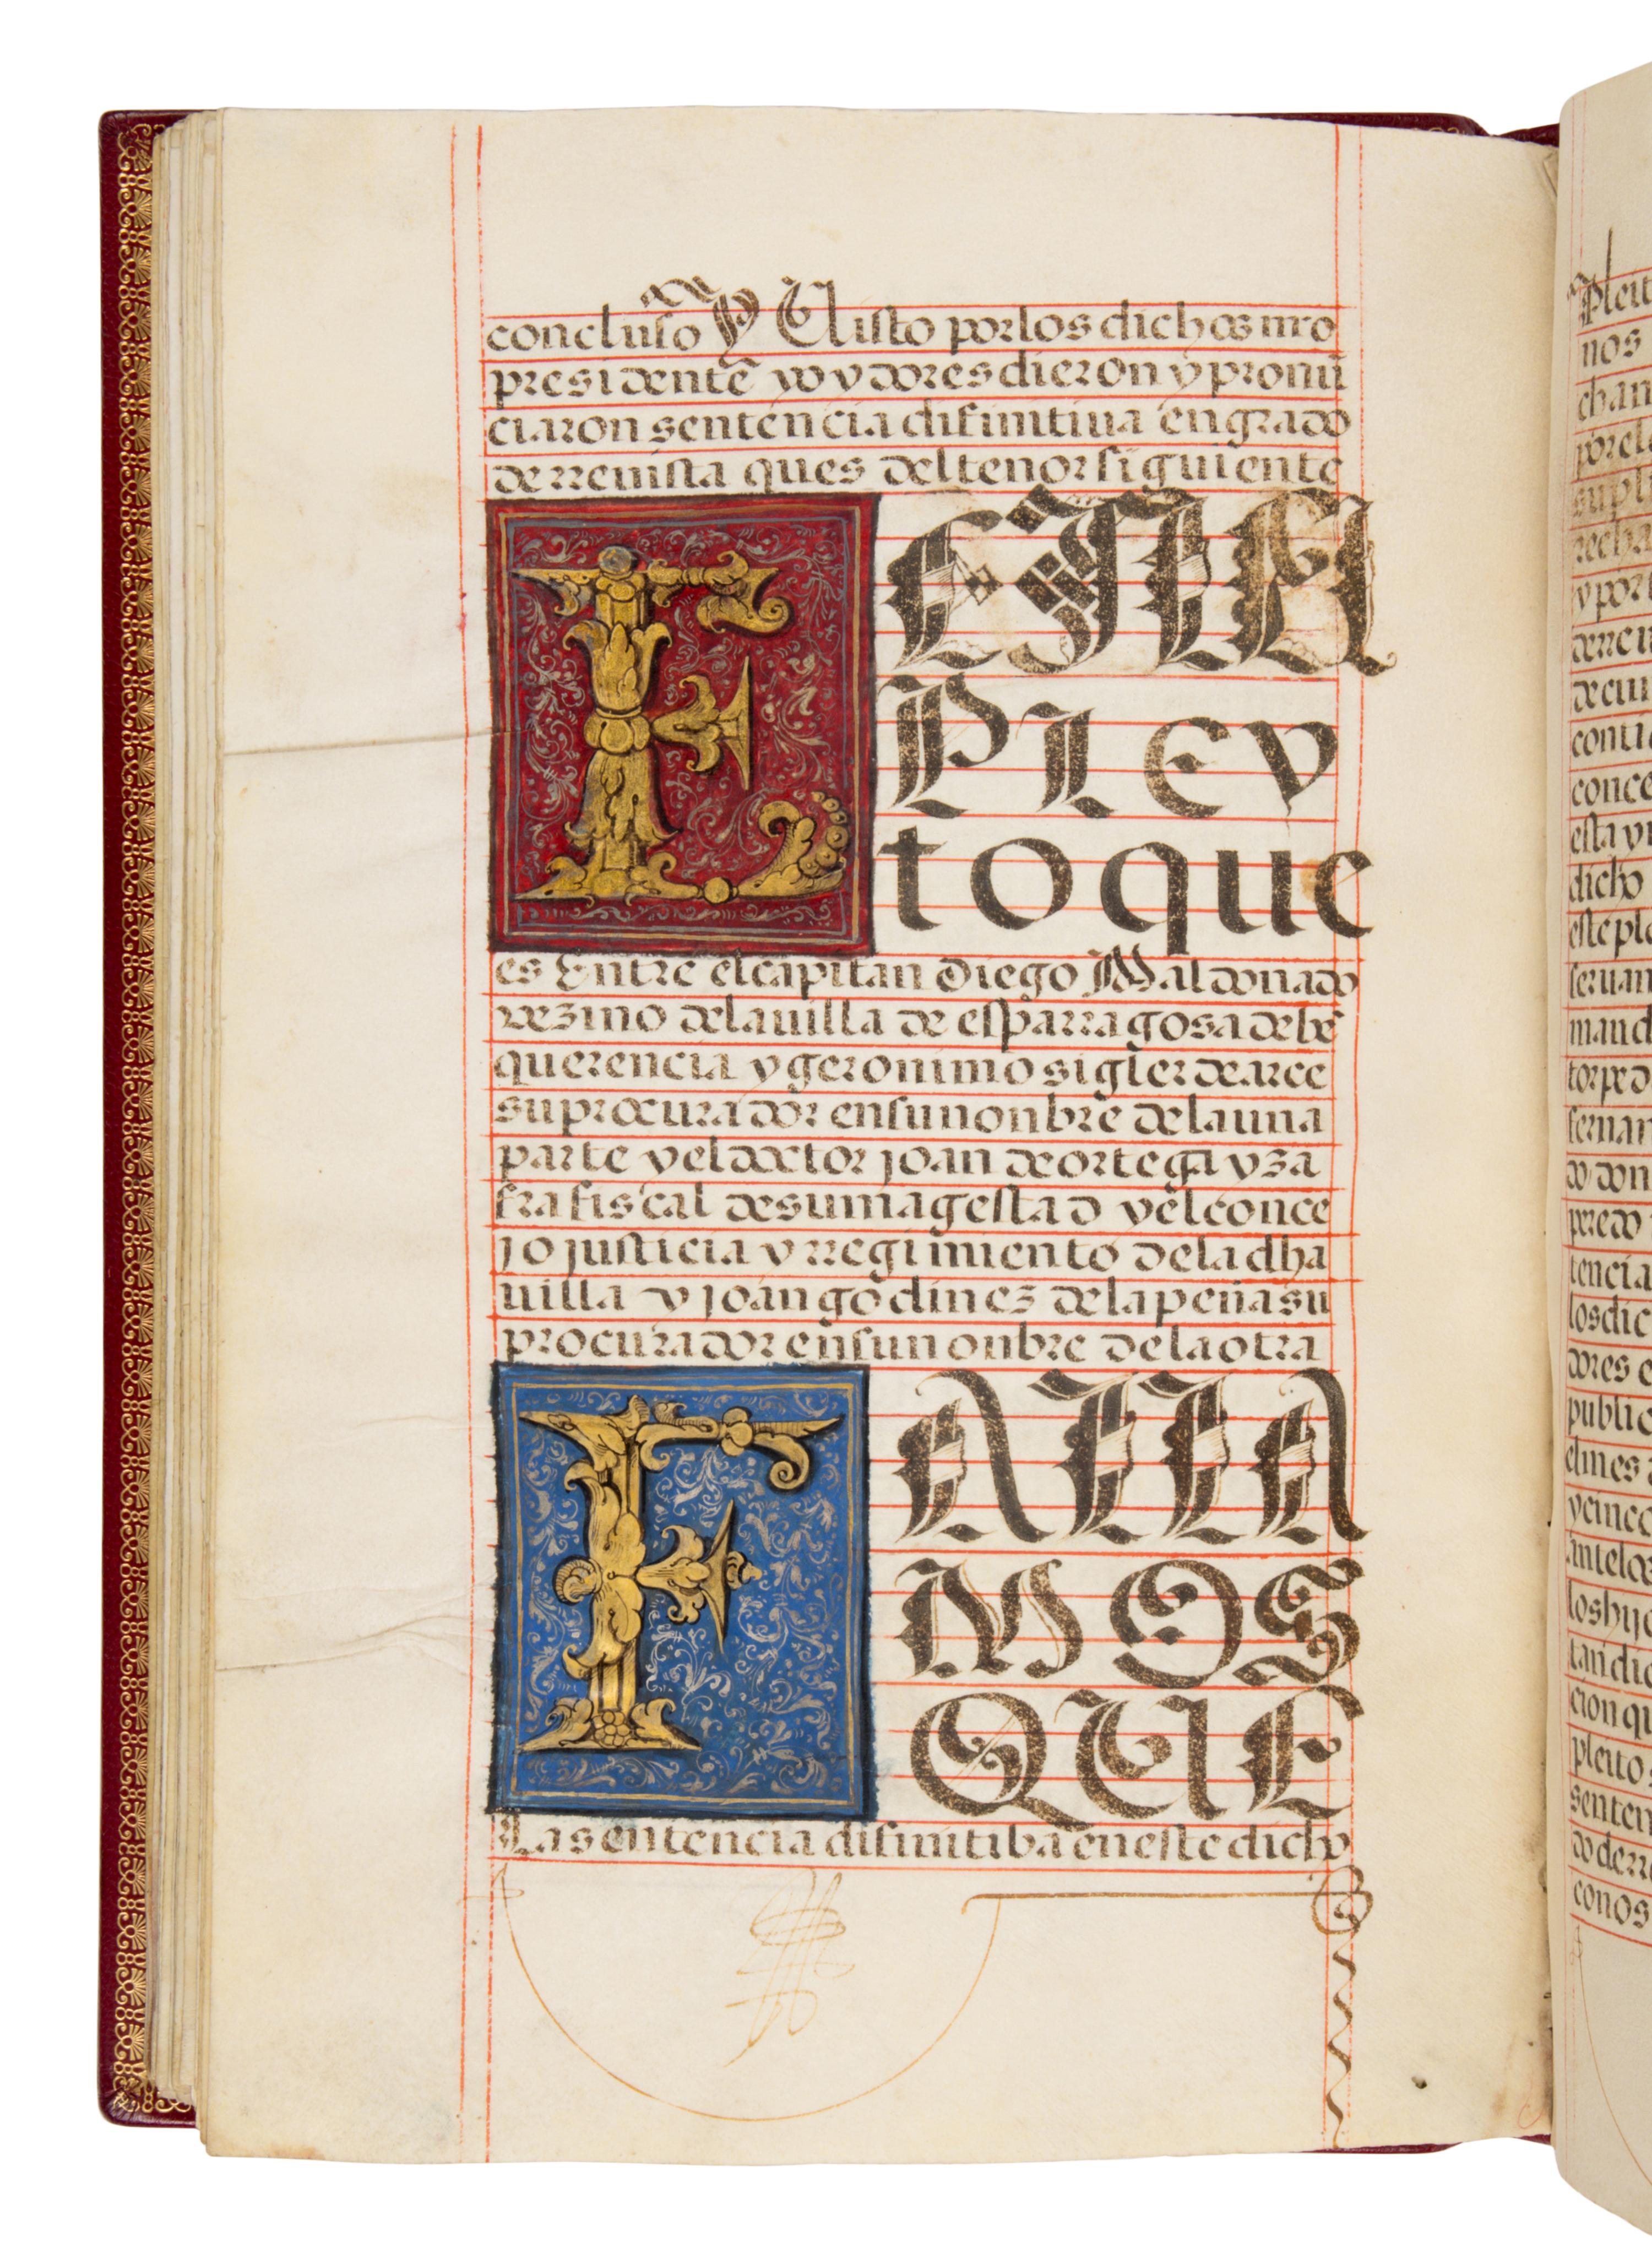 concluso Y Visto por los dichos nro
presidente y oydores dieron y pronũ
ciaron sentencia difinitiua en grado
de rreuista ques del tenor siguiente
EN EL
PLEY
to que
es Entre el capitan Diego Maldonado
vezino de la uilla de esparragosa de be
querencia y geronimo sigler de arce
su procurador en su nonbre de la una
parte y el doctor joan de ortega y za
fra fiscal de su magestad y el conce
jo justicia y rregimiento de la dha
uilla y joan godinez de la peña su
procurador en su nonbre de la otra
FALLA
MOS
QUE
La sentencia difinitiba en este dicho
Pleit
nos
chan
por el
supli
recha
y port
de rreu
de cui
contra
conce
esta vi
dicho
este ple
mand
do don
tencia
los dic
dores e
public
el mes
y cinco
ante los
los hijo
tan dic
cion qu
pleito
senten
do derr
conos